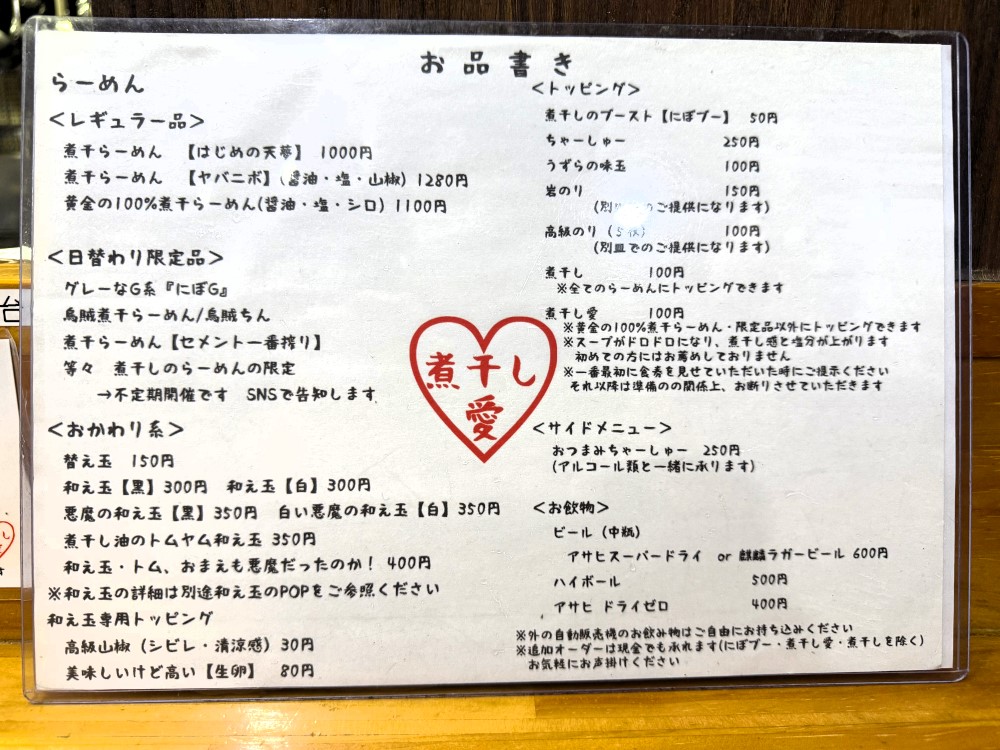 お品書き
らーめん
<レギュラー品>
煮干らーめん 【はじめの天夢】 1000円
煮干らーめん 【ヤバニボ】(醤油・塩・山椒) 1280円
黄金の100%煮干らーめん(醤油・塩・シロ) 1100円
<日替わり限定品>
グレーなG系『にぼG』
烏賊煮干らーめん/烏賊ちん
煮干らーめん【セメント一番搾り】
等々 煮干しのらーめんの限定
→不定期開催です SNSで告知します
<おかわり系>
替え玉 150円
和え玉【黒】300円 和え玉【白】300円
悪魔の和え玉【黒】350円 白い悪魔の和え玉【白】350円
煮干し油のトムヤム和え玉 350円
和え玉・トム、おまえも悪魔だったのか! 400円
※和え玉の詳細は別途和え玉のPOPをご参照ください
和え玉専用トッピング
高級山椒(シビレ・清涼感) 30円
美味しいけど高い【生卵】 80円
煮干し
愛
<トッピング>
煮干しのブースト【にぼブー】 50円
ちゃーしゅー 250円
うずらの味玉 100円
岩のり 150円
(別 のご提供になります)
高級のり(5枚) 100円
(別皿でのご提供になります)
煮干し 100円
※全てのらーめんにトッピングできます
煮干し愛 100円
※黄金の100%煮干らーめん・限定品以外にトッピングできます
※スープがドロドロになり、煮干し感と塩分が上がります
初めての方にはお薦めしておりません
※一番最初に食券を見せていただいた時にご提示ください
それ以降は準備のの関係上、お断りさせていただきます
<サイドメニュー>
おつまみちゃーしゅー 250円
(アルコール類と一緒に承ります)
<お飲物>
ビール(中瓶)
アサヒスーパードライ or 麒麟ラガービール 600円
ハイボール 500円
アサヒ ドライゼロ 400円
※外の自動販売機のお飲み物はご自由にお持ち込みください
※追加オーダーは現金でも承れます(にぼブー・煮干し愛・煮干しを除く)
お気軽にお声掛けください
台